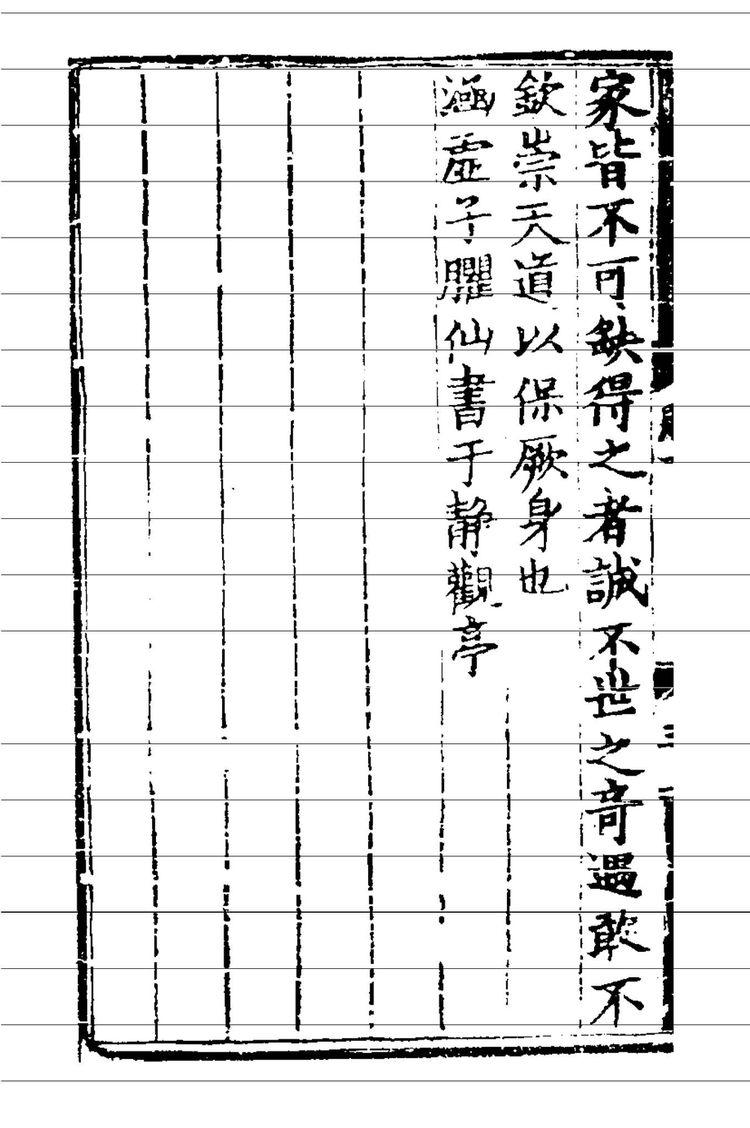 家皆不可缺得之者誠不世之奇遇敢不
欽崇天道以保厥身也
涵虛子臞仙書于靜觀亭